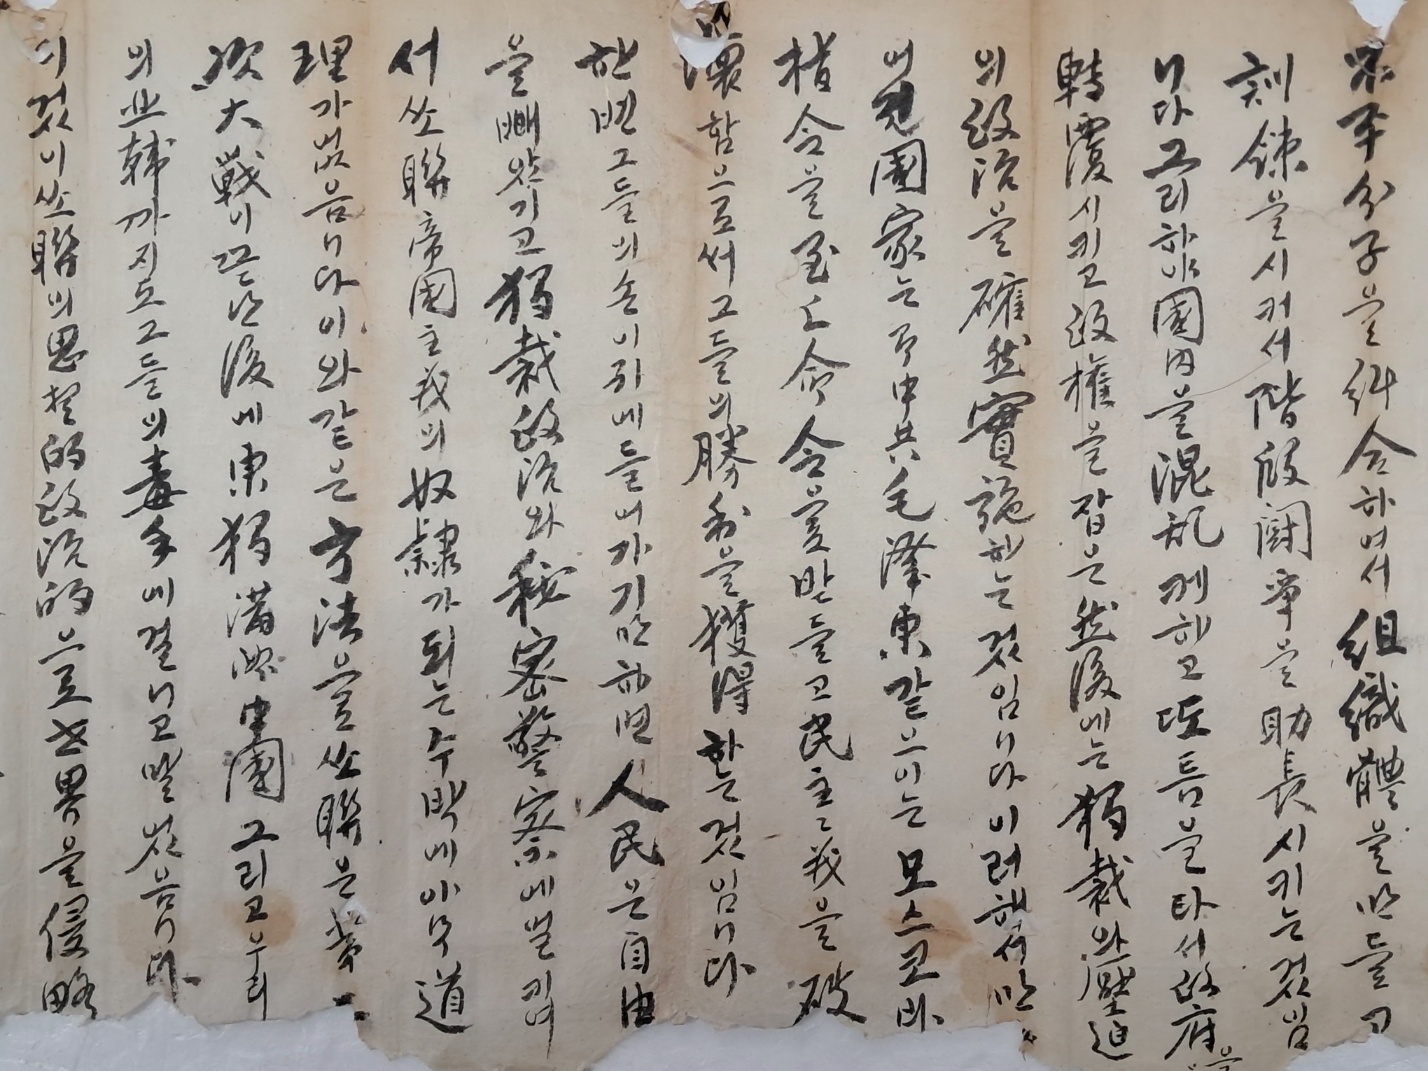 不平分子을 糾合하여서 組織體을 만들고
訓錬을 시켜서 階段鬪爭을 助長시키는 것임
니다 그리하야 國內을 混乱케 하고 또 틈을 타서 政府을
轉覆시키고 政權을 잡은 然後에는 獨裁와 壓迫
의 政治을 確然 實施하는 것임니다 이러해서 만
國家는 中共 毛澤東 같은 이는 모스코바
指令을 至上命令으로 받들고 民主主義을 破
壞함으로써 그들의 勝利을 獲得하는 것임니다
한번 그들의 손아귀에 들어가기만 하면 人民은 自由
을 빼앗기고 獨裁政治와 秘密警察에 떨며
서 쏘聯帝國主義의 奴隸가 되는 수밖에 아무 道
理가 없읍니다 이와 같은 方法을 쏘聯은 第二
次大戰이 끝난 後에 東獨 滿洲 中國 그리고 우리
의 北韓까지도 그들의 毒手에 걸니고 말었음니다
이것이 쏘聯의 思想的 政治的으로 世界을 侵略